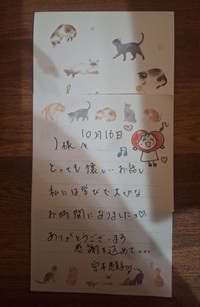 10月16日
J様
とっても懐しいお話し
私には学びで大切な
お時間になりました♡
ありがとうございます
感謝を込めて...